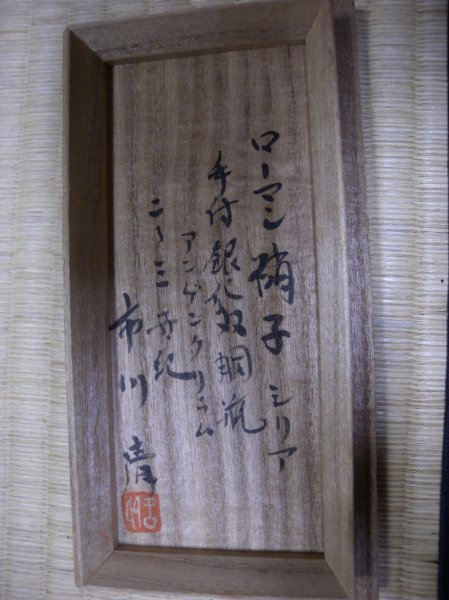 ローマン硝子 シリア
手付銀化双胴瓶
アンゲンタリウム
二〜三世紀
市川 清